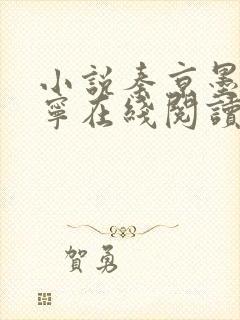 小說秦京墨
寧在綫閱讀
賀勇